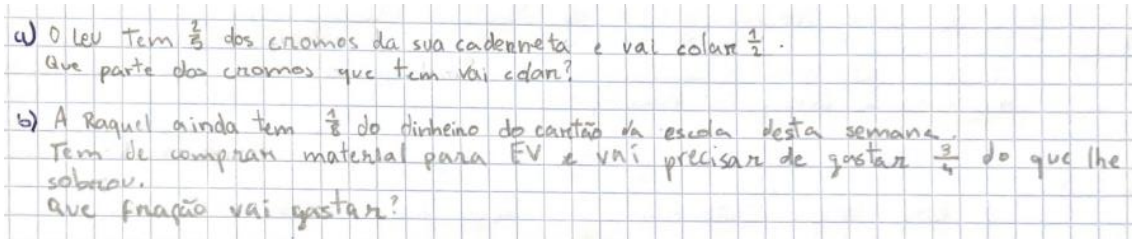 a) O Leu tem 2/3 dos cromos da sua caderneta e vai colar 1/2.
Que parte dos cromos que tem vai colar?
b) A Raquel ainda tem 1/8 do dinheiro do cartão da escola desta semana.
Tem de comprar material para EV e vai precisar de gastar 3/4 do que lhe
sobrou.
Que fração vai gastar?